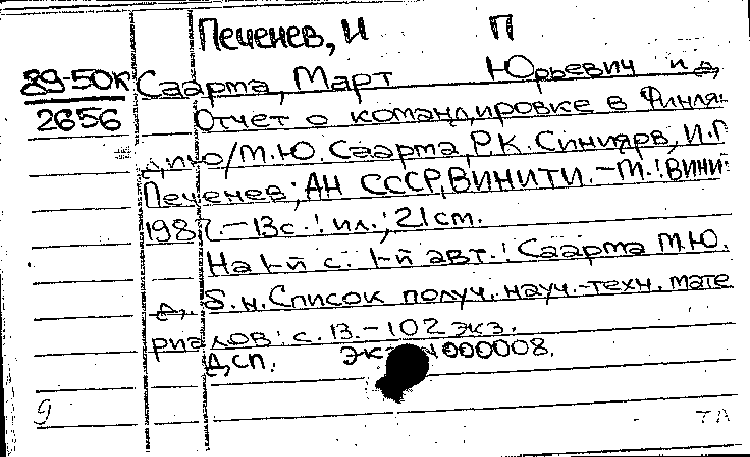 Печенев, И П
89-50К Саарма, Март Юрьевич и д,
2656 Отчет о командировке в Финлян-
дию/М.Ю. Саарма, Р.К. Синиярв, И.П
Печенев; АН СССР, ВИНИТИ. – М.: ВИНИ
1987. – 13с.: ил.; 21 см.
На 1-й с. 1-й авт.: Саарма М.Ю.
Д, Б.н. Список получ. науч.-техн. мате
риалов: с. 13. – 102 экз.
Дсп. N000008.
9